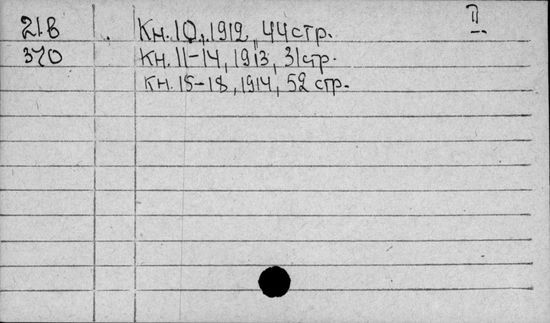 21В Кн. 10, 1912, 44 стр. II
370 Кн. 11-14, 1913, 31 стр.
Кн. 15-18, 1914, 52 стр.